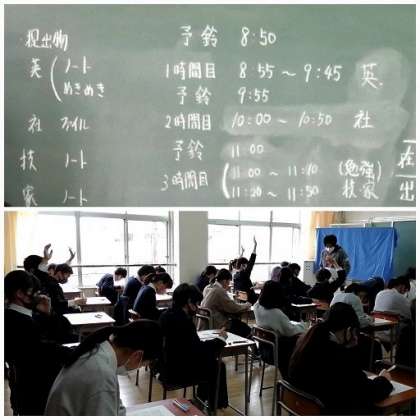 提出物
英 ノート
めきめき
社 ファイル
技 ノート
家 ノート
予鈴 8:50
1時間目 8:55 ～ 9:45 英
予鈴 9:55
2時間目 10:00 ～ 10:50 社
予鈴 11:00
3時間目 11:00 ～ 11:10 (勉強)
11:20 ～ 11:50 技家
在
出